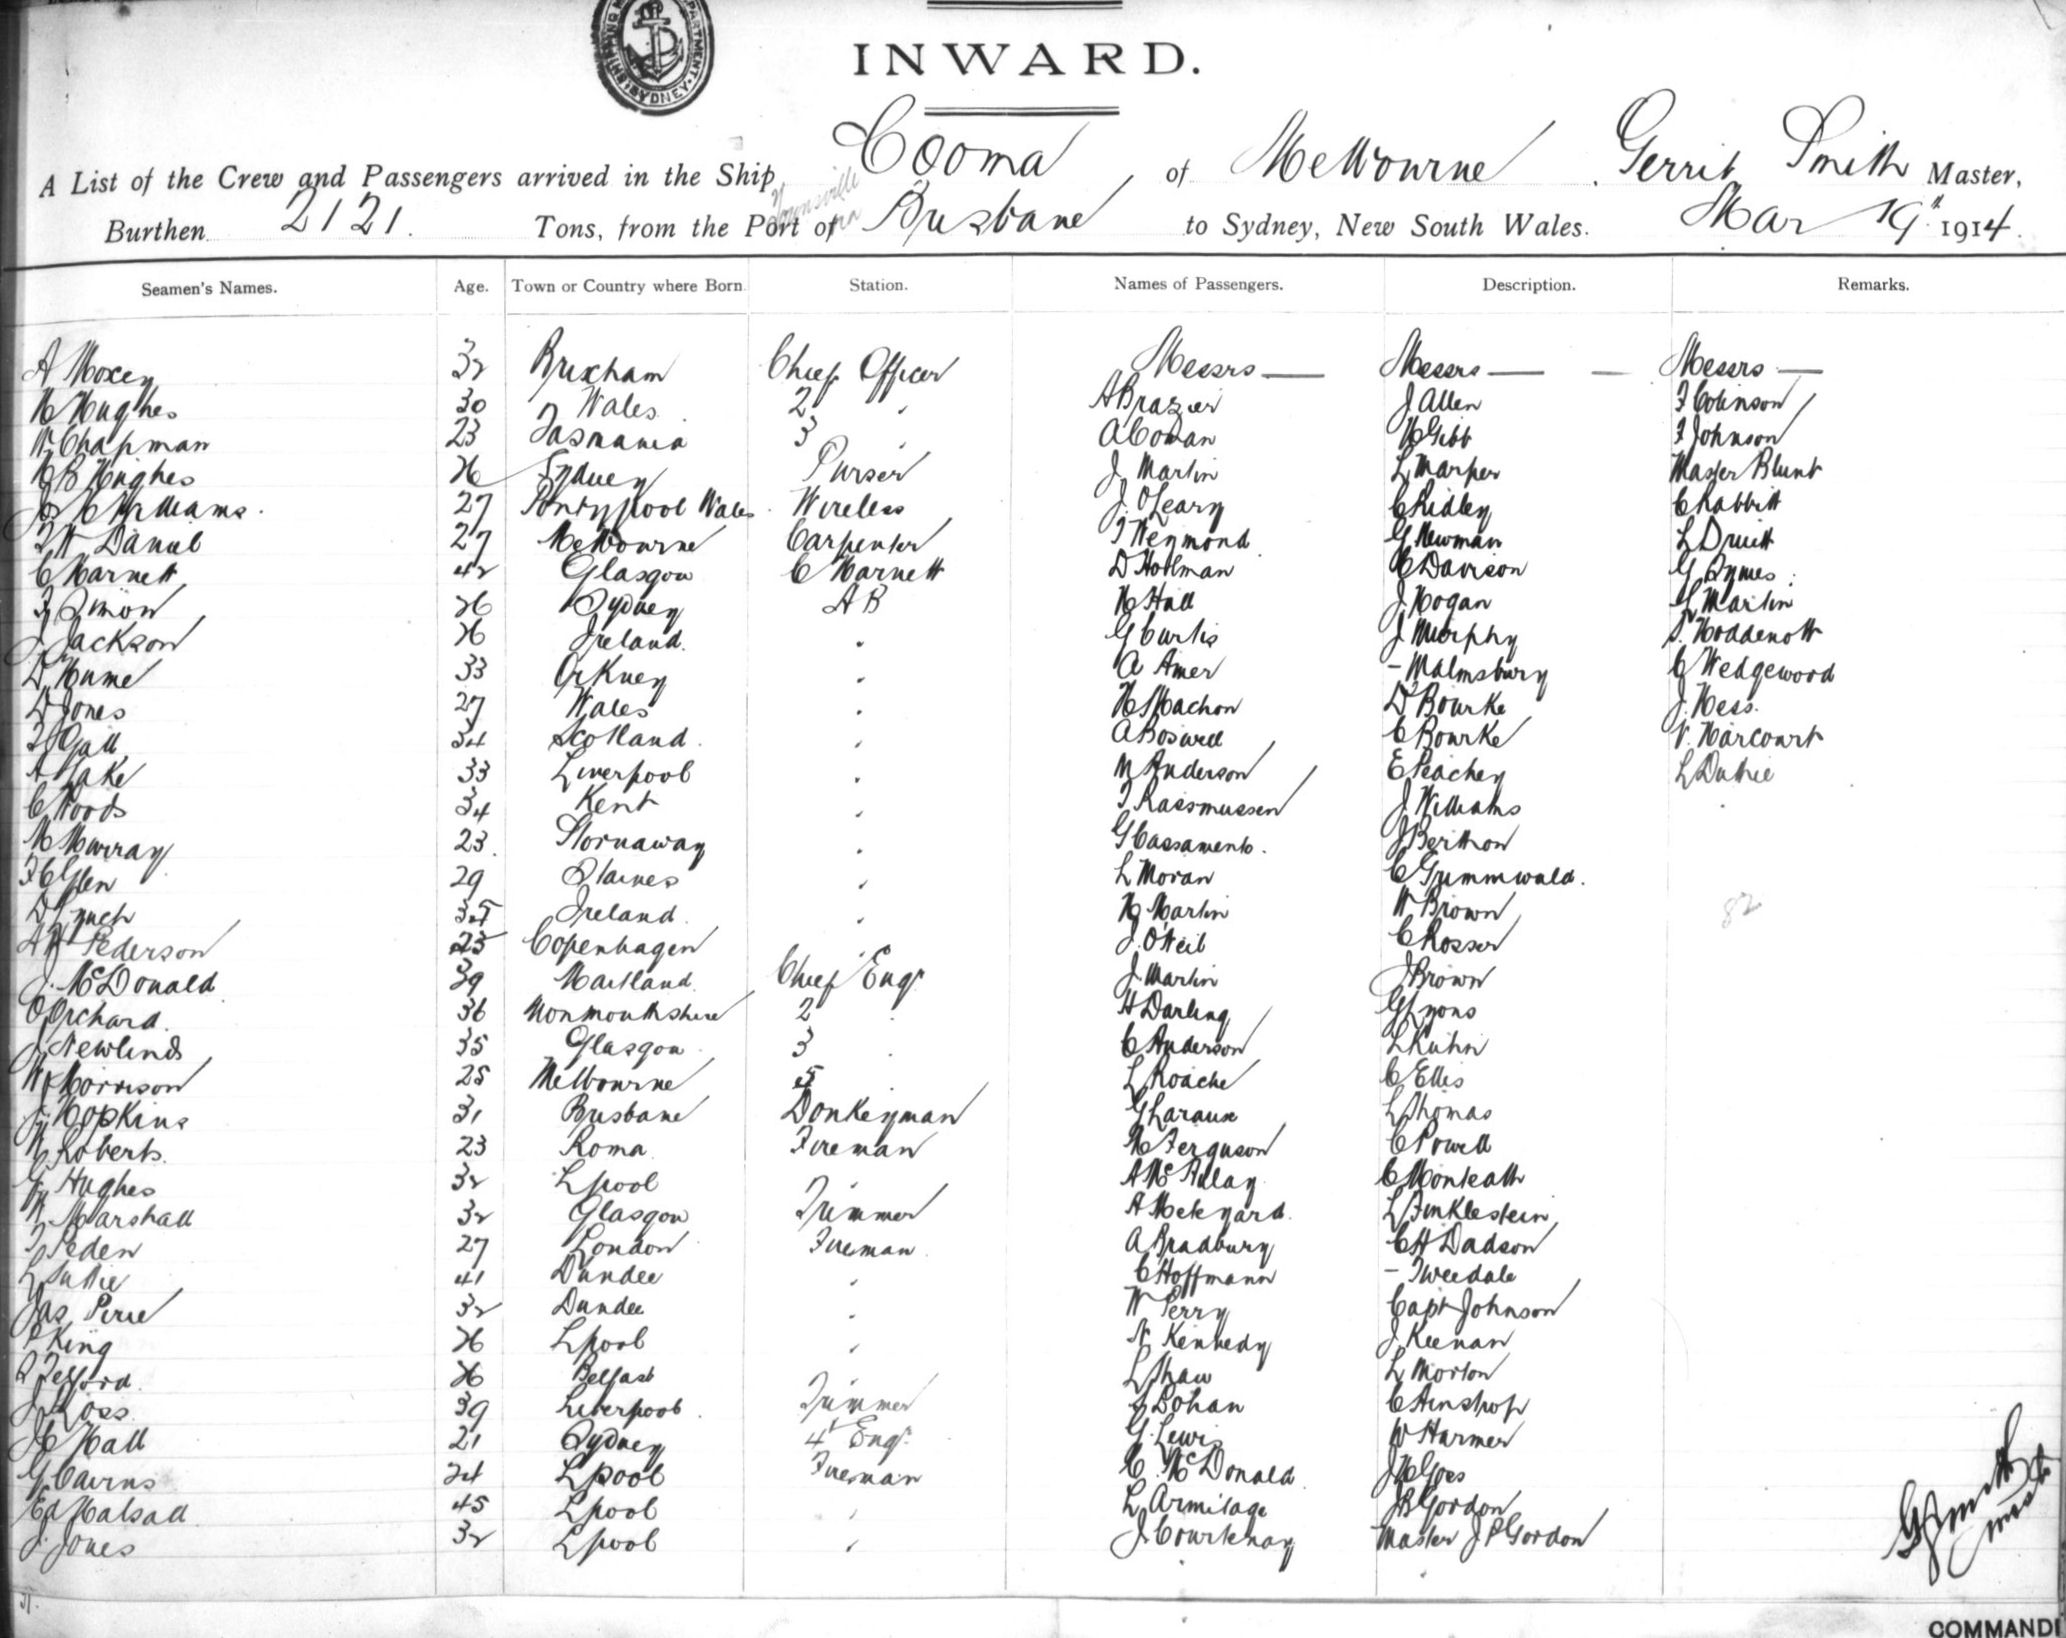 SHIPPING MASTER'S DEPARTMENT. SYDNEY.
INWARD.
A List of the Crew and Passengers arrived in the Ship Cooma of Melbourne, Gerrit Smith Master,
Townsville via
Burthen 2121. Tons, from the Port of Brisbane to Sydney, New South Wales. Mar 19th 1914.
Seamen's Names. Age. Town or Country where Born. Station. Names of Passengers. Description. Remarks.
A Moxey 32 Brixham Chief Officer Messrs — Messrs — — Messrs —
H Hughes 30 Wales 2 " A Brazier J Allen F Colinson
W Chapman 23 Tasmania 3 " A Cowan H Gibb F Johnson
H B Hughes 26 Sydney Purser J. Martin L Harper Master Blunt
Jas H Williams. 27 Pontypool Wales. Wireless J. O'Leary C Ridley C Rabbitt
W Daniel 27 Melbourne Carpenter T Weymond G Newman L Druitt
C Harnett 42 Glasgow C Harnett D Holman C Davison G Symes
Simon 26 Sydney AB H Hall J Hogan G Martin
J Jackson 26 Ireland. " G Curtis J Murphy S. Hoddenott
D Hume 33 Orkney " A Amer - Malmsbury C Wedgewood
D Jones 27 Wales " H Machon D Bourke J. Hess.
Gall 34 Scotland. " A Boswell C Bourke V. Harcourt
A Lake 33 Liverpool " M Anderson E Peachey L Duthie
C Woods 34 Kent " T Rassmussen J Williams
M Murray 23. Stornaway " G Cassamento. J Berthon
Glen 29 Staines " L Moran C Grimmwald.
D Lynch 35 Ireland. " H Martin W Brown 82
A H Pederson 25 Copenhagen " J. O'Neil C Rosser
J. McDonald 39 Maitland. Chief Engr J. Martin J Brown
C Orchard. 36 Monmouthshire 2 " H Darling G Lyons
J Newlinds 35 Glasgow 3 " C Anderson L Kuhn
W Morrison 25 Melbourne 5 " L Roache C Ellis
J Hopkins 31 Brisbane Donkeyman G Laraux L Thomas
W Roberts. 23 Roma Fireman H Ferguson C Powell
Hughes 32 Lpool " A McAulay C Monteath
W Marshall 32 Glasgow Trimmer A Mekyard. L Finklestein
T Peden 27 London Fireman. A Bradbury C H Dadson
L Suttie 41 Dundee " C Hoffmann - Tweedale
Jas Pirie 32 Dundee " W Perry Capt Johnson
P King 26 Lpool " N Kennedy J. Keenan
Telford. 26 Belfast L Shaw L Morton
J Ross 39 Liverpool. Trimmer J Dohan C Ainshop
H Hall 21 Sydney 4th Engr. G. Lewis W Harmer
G Cairns 24 Lpool Fireman C. McDonald J H Goes
Ed Halsall 45 Lpool " L Armitage J B Gordon
J. Jones 32 Lpool " J. Courtenay Master J P Gordon
G Smith
Master
COMMANDI